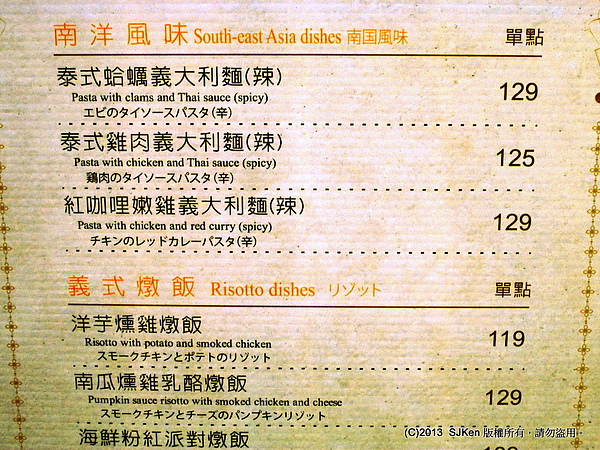 南洋風味 South-east Asia dishes 南国風味 單點
泰式蛤蠣義大利麵(辣) 129
Pasta with clams and Thai sauce (spicy)
エビのタイソースパスタ(辛)
泰式雞肉義大利麵(辣) 125
Pasta with chicken and Thai sauce (spicy)
鶏肉のタイソースパスタ(辛)
紅咖哩嫩雞義大利麵(辣) 129
Pasta with chicken and red curry (spicy)
チキンのレッドカレーパスタ(辛)
義式燉飯 Risotto dishes リゾット 單點
洋芋燻雞燉飯 119
Risotto with potato and smoked chicken
スモークチキンとポテトのリゾット
南瓜燻雞乳酪燉飯 129
Pumpkin sauce risotto with smoked chicken and cheese
スモークチキンとチーズのパンプキンリゾット
海鮮粉紅派對燉飯
(C)2013 SJKen 版權所有‧請勿盜用